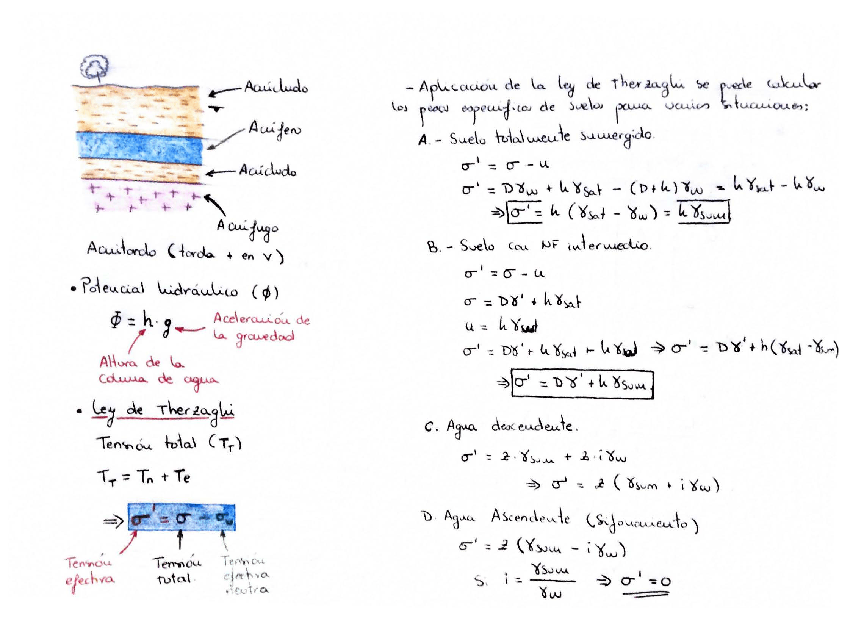 Acuicludo
Acuífero
Acuicludo
Acuífugo
Acuitardo (tarda + en v)
• Potencial hidráulico (ϕ)
Φ = h · g
Aceleración de
la gravedad
Altura de la
columna de agua
• Ley de Therzaghi
Tensión total (T_T)
T_T = Tn + Te
⇒ σ' = σ -
Tensión
efectiva
Tensión
total.
Tensión
efectiva
neutra
- Aplicación de la ley de Therzaghi se puede calcular
los pesos específicos de suelos para varias situaciones:
A. - Suelo totalmente sumergido.
σ' = σ - u
σ' = Dγw + hγsat - (D+h)γw = hγsat - hγw
⇒ σ' = h (γsat - γw) = hγsum
B. - Suelo con NF intermedio.
σ' = σ - u
σ = Dγ' + hγsat
u = hγ
σ' = Dγ' + hγsat - hγ ⇒ σ' = Dγ' + h(γsat - γsum)
⇒ σ' = Dγ' + hγsum.
C. Agua descendente.
σ' = z·γsum + z·iγw
⇒ σ' = z (γsum + iγw)
D. Agua Ascendente (Sifonamiento)
σ' = z (γsum - iγw)
Si i = γsum/γw ⇒ σ' = 0